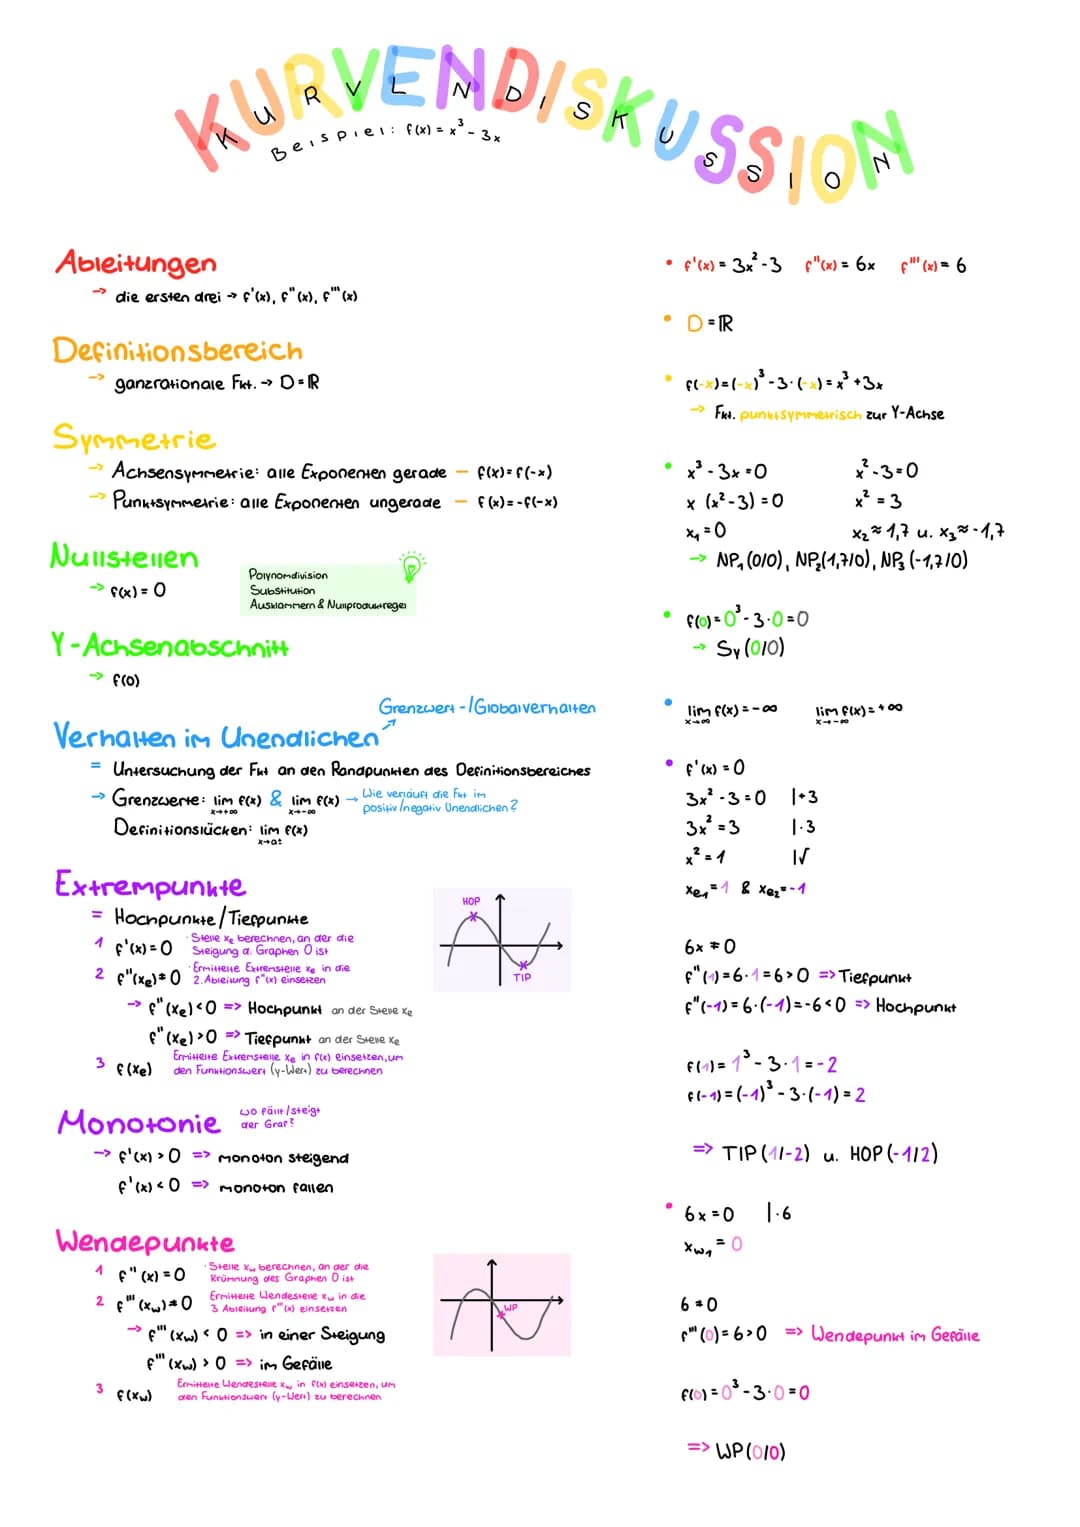 KURVENDISKUSSION
KURVENDISKUSSION
Beispiel: f(x) = x³ - 3x
Ableitungen
→ die ersten drei → f'(x), f"(x), f'''(x)
Definitionsbereich
→ ganzrationale Fkt. → D = ℝ
Symmetrie
→ Achsensymmetrie: alle Exponenten gerade – f(x) = f(-x)
→ Punktsymmetrie: alle Exponenten ungerade – f(x) = -f(-x)
Nullstellen
→ f(x) = 0
Polynomdivision
Substitution
Ausklammern & Nullproduktregel
Y-Achsenabschnitt
→ f(0)
Grenzwert-/Globalverhalten
Verhalten im Unendlichen
= Untersuchung der Fkt an den Randpunkten des Definitionsbereiches
→ Grenzwerte: lim f(x) & lim f(x) → Wie verläuft die Fkt im
x→+∞ x→-∞ positiv/negativ Unendlichen?
Definitionslücken: lim f(x)
x→a±
Extrempunkte
= Hochpunkte/Tiefpunkte
1 f'(x) = 0 · Stelle xₑ berechnen, an der die
Steigung d. Graphen 0 ist
2 f"(xₑ) ≠ 0 · Ermittelte Extremstelle xₑ in die
2. Ableitung f"(x) einsetzen
→ f"(xₑ) < 0 => Hochpunkt an der Stelle xₑ
f"(xₑ) > 0 => Tiefpunkt an der Stelle xₑ
3 f(xₑ) Ermittelte Extremstelle xₑ in f(x) einsetzen, um
den Funktionswert (y-Wert) zu berechnen
HOP
TIP
Monotonie wo fällt/steigt
der Graf?
→ f'(x) > 0 => monoton steigend
f'(x) < 0 => monoton fallen
Wendepunkte
1 f"(x) = 0 · Stelle x_w berechnen, an der die
Krümmung des Graphen 0 ist
2 f'''(x_w) ≠ 0 Ermittelte Wendestelle x_w in die
3 Ableitung f'''(x) einsetzen
→ f'''(x_w) < 0 => in einer Steigung
f'''(x_w) > 0 => im Gefälle
3 f(x_w) Ermittelte Wendestelle x_w in f(x) einsetzen, um
den Funktionswert (y-Wert) zu berechnen
WP
• f'(x) = 3x² - 3 f"(x) = 6x f'''(x) = 6
• D = ℝ
• f(-x) = (-x)³ - 3·(-x) = x³ + 3x
→ Fkt. punktsymmetrisch zur Y-Achse
• x³ - 3x = 0 x² - 3 = 0
x (x² - 3) = 0 x² = 3
x₁ = 0 x₂ ≈ 1,7 u. x₃ ≈ -1,7
→ NP₁ (0/0), NP₂ (1,7/0), NP₃ (-1,7/0)
• f(0) = 0³ - 3·0 = 0
→ Sy (0/0)
• lim f(x) = -∞ lim f(x) = +∞
x→∞ x→-∞
• f'(x) = 0
3x² - 3 = 0 |+3
3x² = 3 |·3
x² = 1 |√
xₑ₁ = 1 & xₑ₂ = -1
6x ≠ 0
f"(1) = 6·1 = 6 > 0 => Tiefpunkt
f"(-1) = 6·(-1) = -6 < 0 => Hochpunkt
f(1) = 1³ - 3·1 = -2
f(-1) = (-1)³ - 3·(-1) = 2
=> TIP (1/-2) u. HOP (-1/2)
• 6x = 0 |·6
x_w₁ = 0
6 ≠ 0
f'''(0) = 6 > 0 => Wendepunkt im Gefälle
f(0) = 0³ - 3·0 = 0
=> WP (0/0)